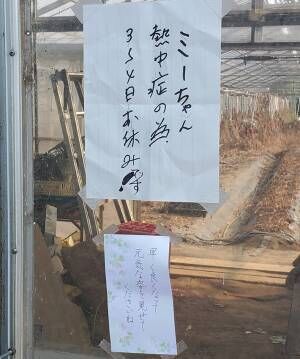 ミーちゃん
熱中症の為
3〜4日お休み
早く良くなって
元気な姿を見せて
くださいね